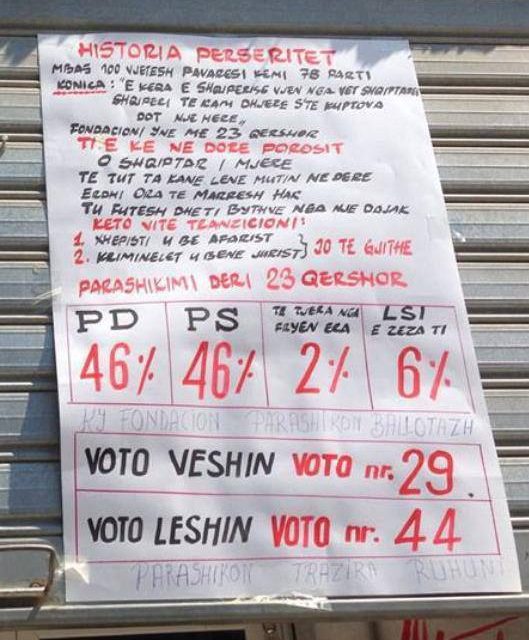 HISTORIA PERSERITET
MBAS 100 VJETESH PAVARESI KEMI 78 PARTI
KONICA: "E KEQA E SHQIPERISE VJEN NGA VET SHQIPTARET
SHQIPERI TE KAM DHJERE S'TE KUPTOVA
DOT NJE HERE,,
FONDACIONI YNE ME 23 QERSHOR
TI E KE NE DORE POROSIT
O SHQIPTAR I MJERE
TE TUT TA KANE LENE MUTIN NE DERE
ERDHI ORA TE MARRESH HAK
TU FUTESH DHETI BYTHVE NGA NJE DAJAK
KETO VITE TRANZICIONI:
1. XHEPISTI U BE AFARIST
2. KRIMINELET U BENE JURIST} JO TE GJITHE
PARASHIKIMI DERI 23 QERSHOR
PD PS TE TJERA NGA FRYEN ERA LSI E ZEZA TI
46% 46% 2% 6%
KY FONDACION PARASHIKON BALLOTAZH
VOTO VESHIN VOTO nr. 29.
VOTO LESHIN VOTO nr. 44
PARASHIKON TRAZIRA RUHUNI